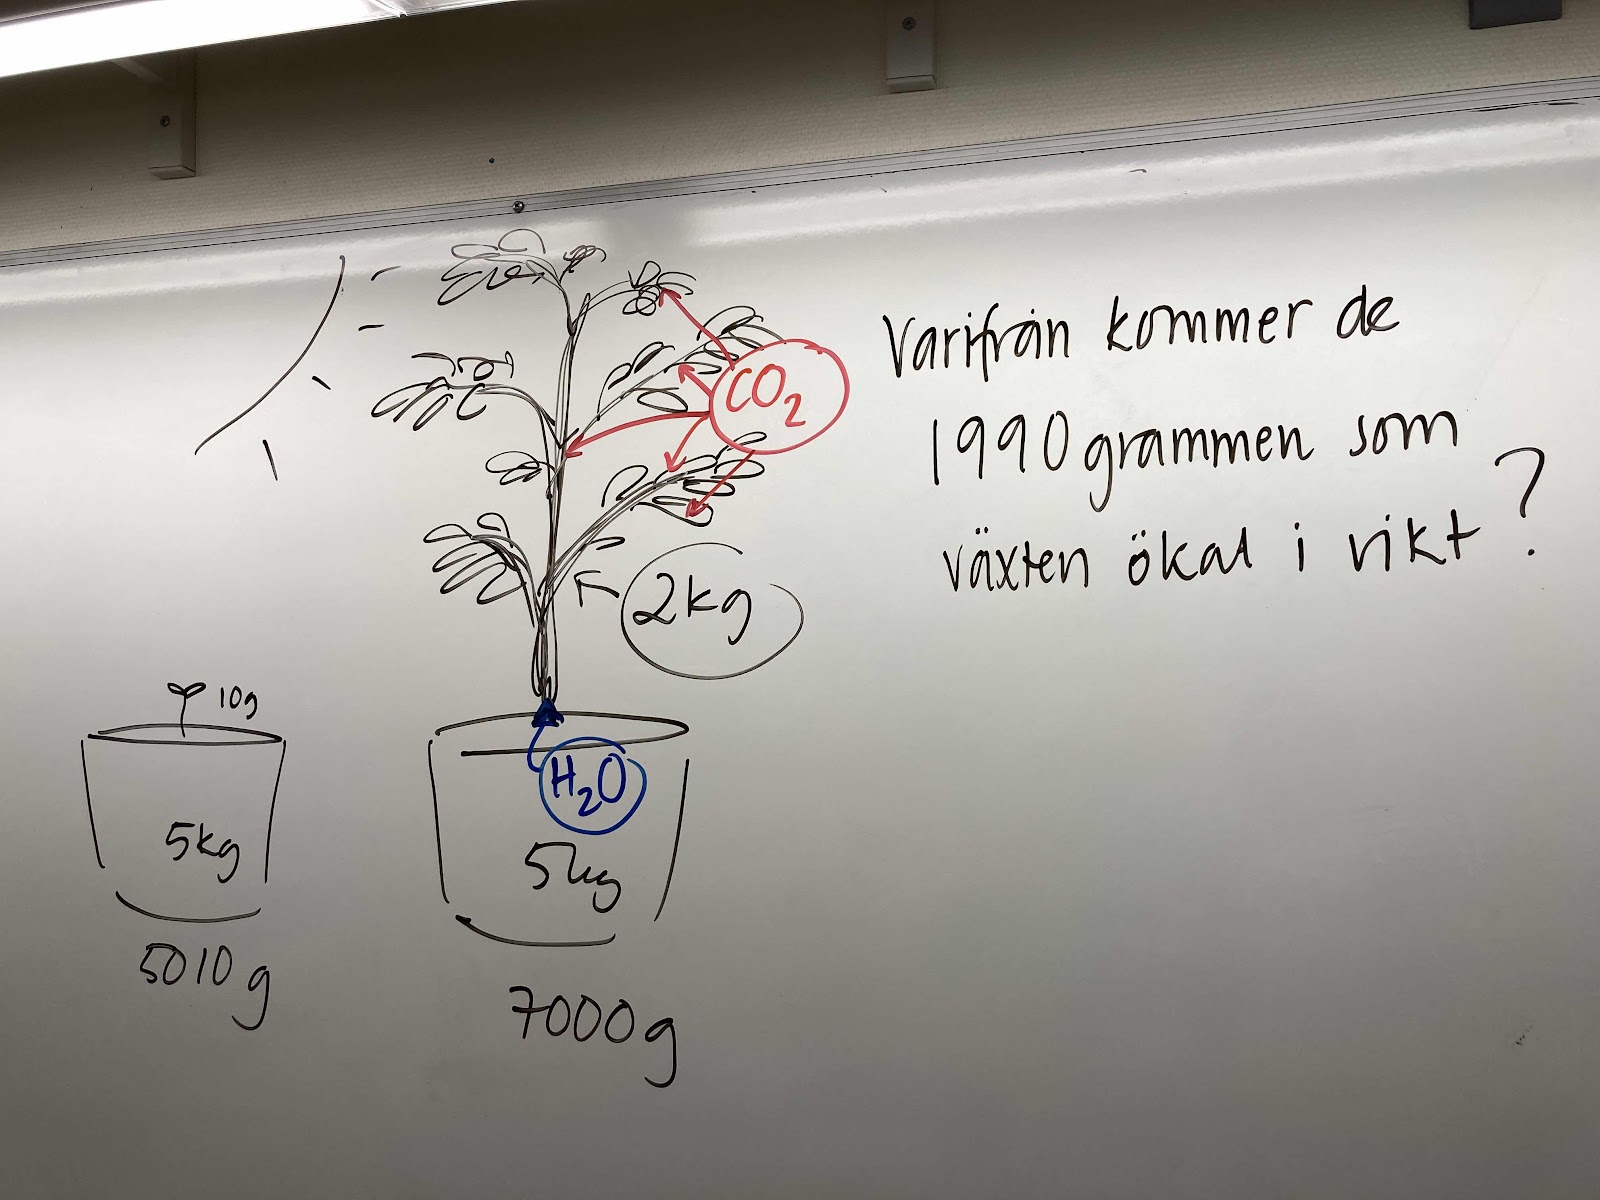 Varifrån kommer de
1990 grammen som
växten ökat i vikt?
CO2
2kg
10g
H2O
5kg
5kg
5010g
7000g